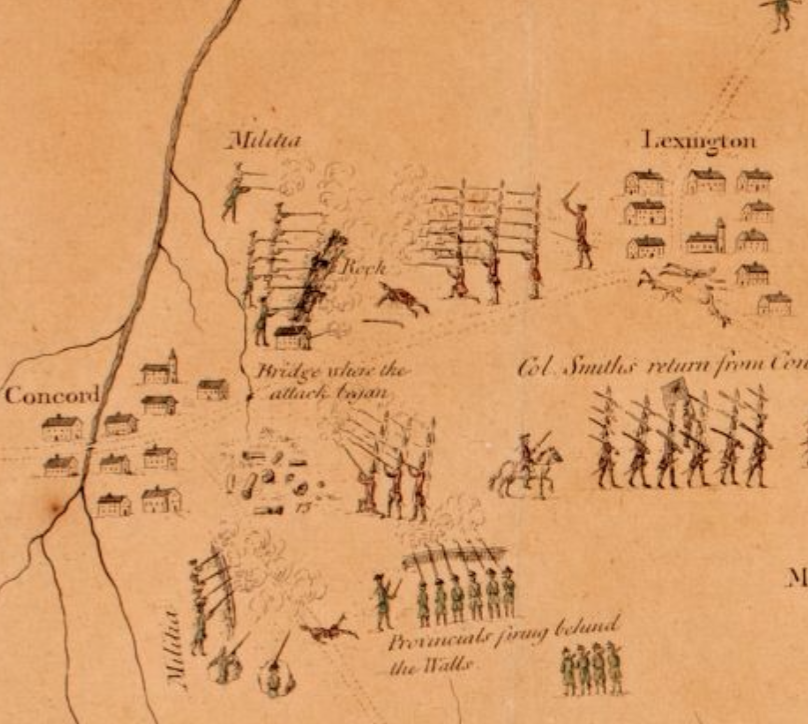 Militia
Lexington
Rock
Bridge where the
attack began
Col. Smiths return from Con
Concord
15
M
Militia
Provincials firing behind
the Walls